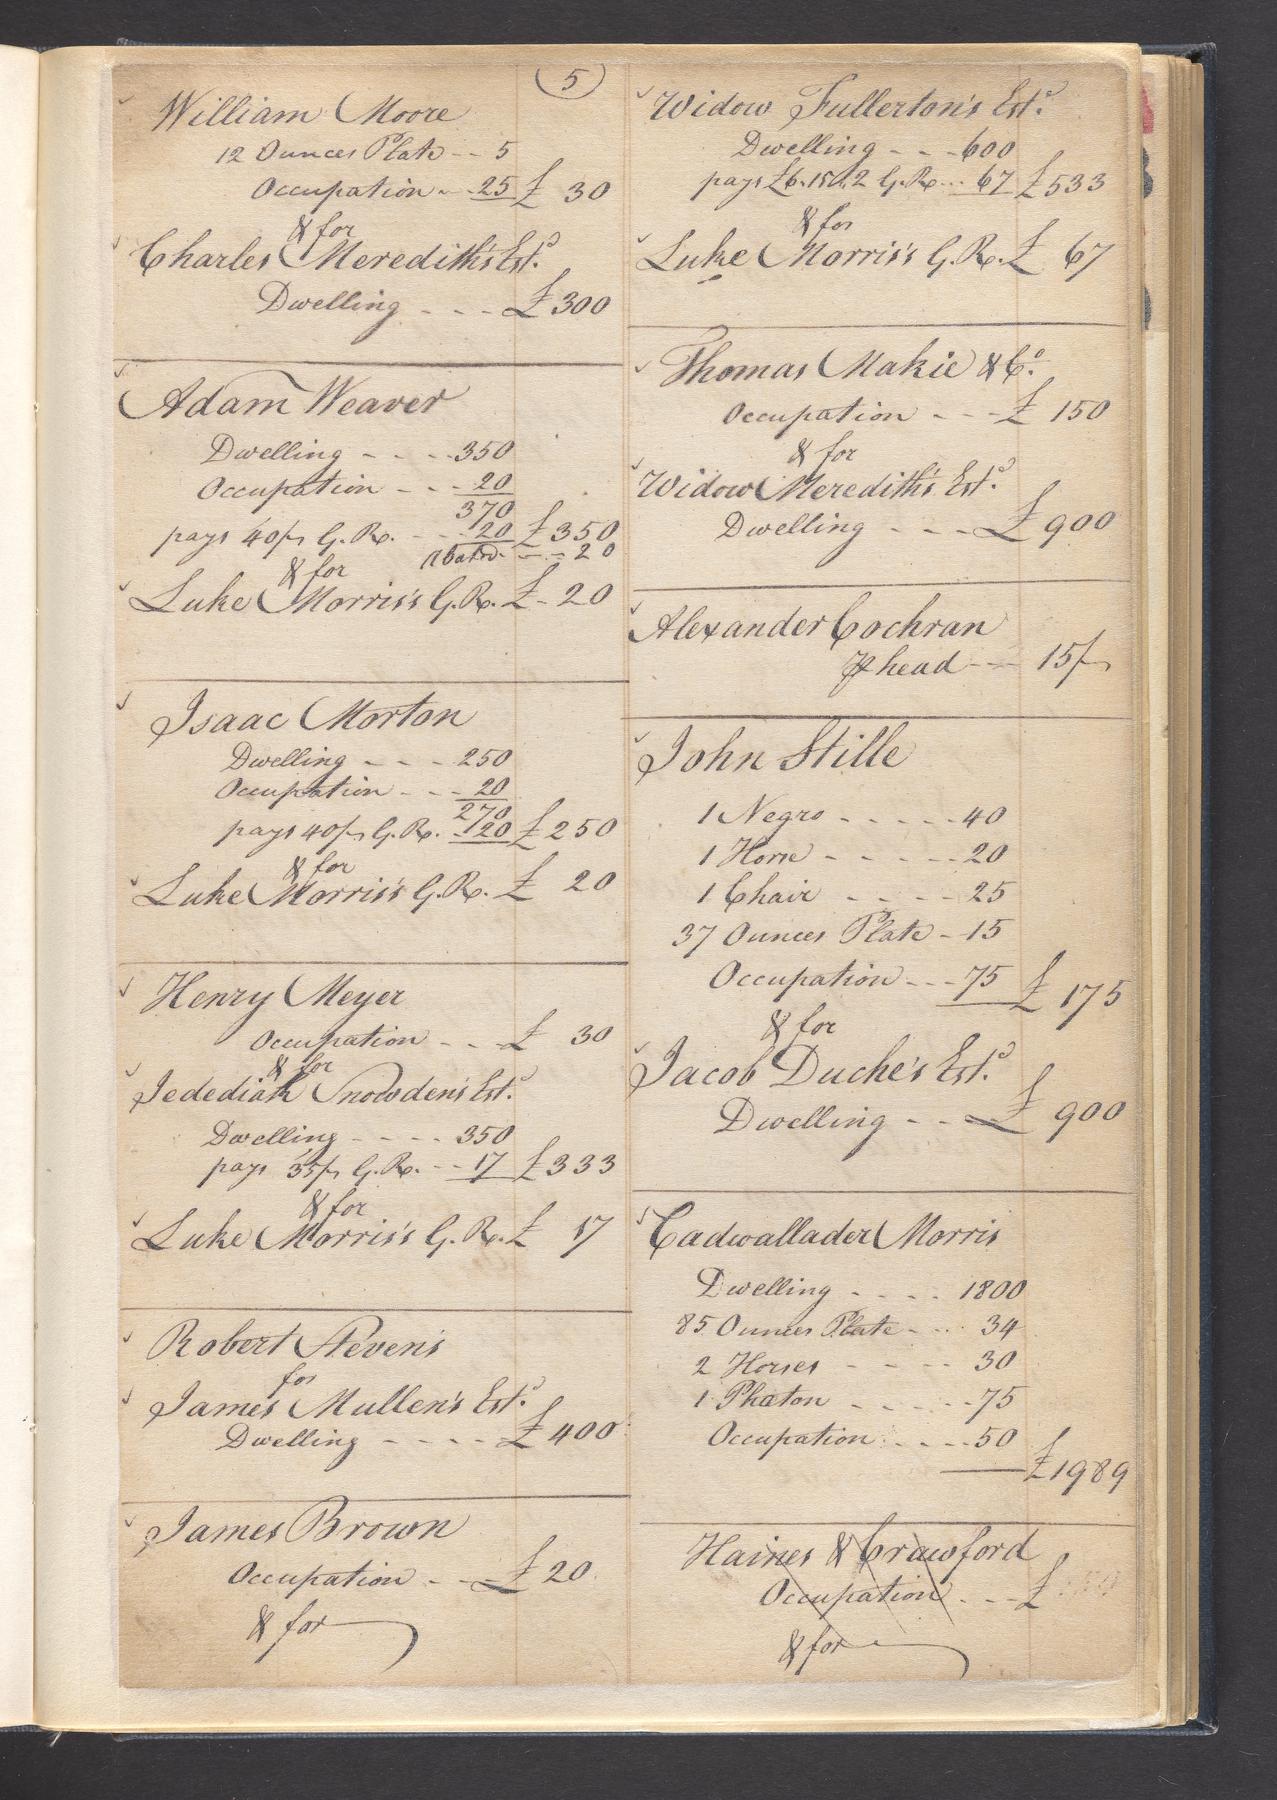 5
William Moore
12 Ounces Plate -- 5
Occupation -- 25 £ 30
& for
Charles Meredith's Estd.
Dwelling - - - £ 300
Adam Weaver
Dwelling - - - 350
Occupation - - - 20
370
pays 40/s G. R. - - 20 £ 350
Abated - - - 20
& for
Luke Morris's G. R. £ - 20
Isaac Morton
Dwelling - - - 250
Occupation - - - 20
270
pays 40/s G. R. - 20 £ 250
& for
Luke Morris's G. R. £ 20
Henry Meyer
Occupation - - - £ 30
& for
Jedediah Snowden's Estd.
Dwelling - - - - 350
pays 35/s G. R. - - 17 £ 333
& for
Luke Morris's G. R. £ 17
Robert Stevens
for
James Mullen's Estd.
Dwelling - - - - £ 400
James Brown
Occupation - - £ 20
& for
Widow Fullerton's Estd.
Dwelling - - - 600
pays £6.15.2 G. R. - - 67 £ 533
& for
Luke Morris's G. R. £ 67
Thomas Makie & Co.
Occupation - - - £ 150
& for
Widow Meredith's Estd.
Dwelling - - - £ 900
Alexander Cochran
℔ head - - - 15/s
John Stille
1 Negro - - - - - 40
1 Horse - - - - - 20
1 Chair - - - - 25
37 Ounces Plate - 15
Occupation - - - 75 £ 175
& for
Jacob Duche's Estd.
Dwelling - - - £ 900
Cadwallader Morris
Dwelling - - - - 1800
85 Ounces Plate - - - 34
2 Horses - - - - 30
1 Phaton - - - - - 75
Occupation - - - - 50
£ 1989
Haines & Crawford
Occupation - - - £
& for